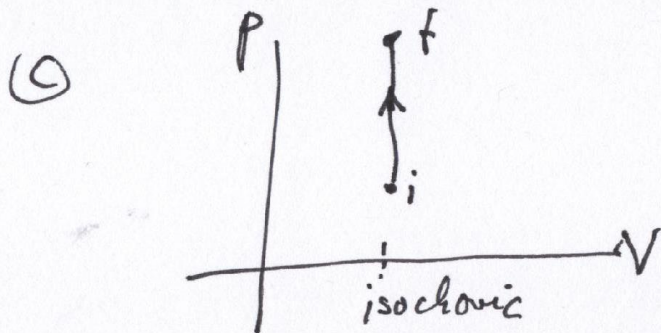 P
f
i
V
isochoric